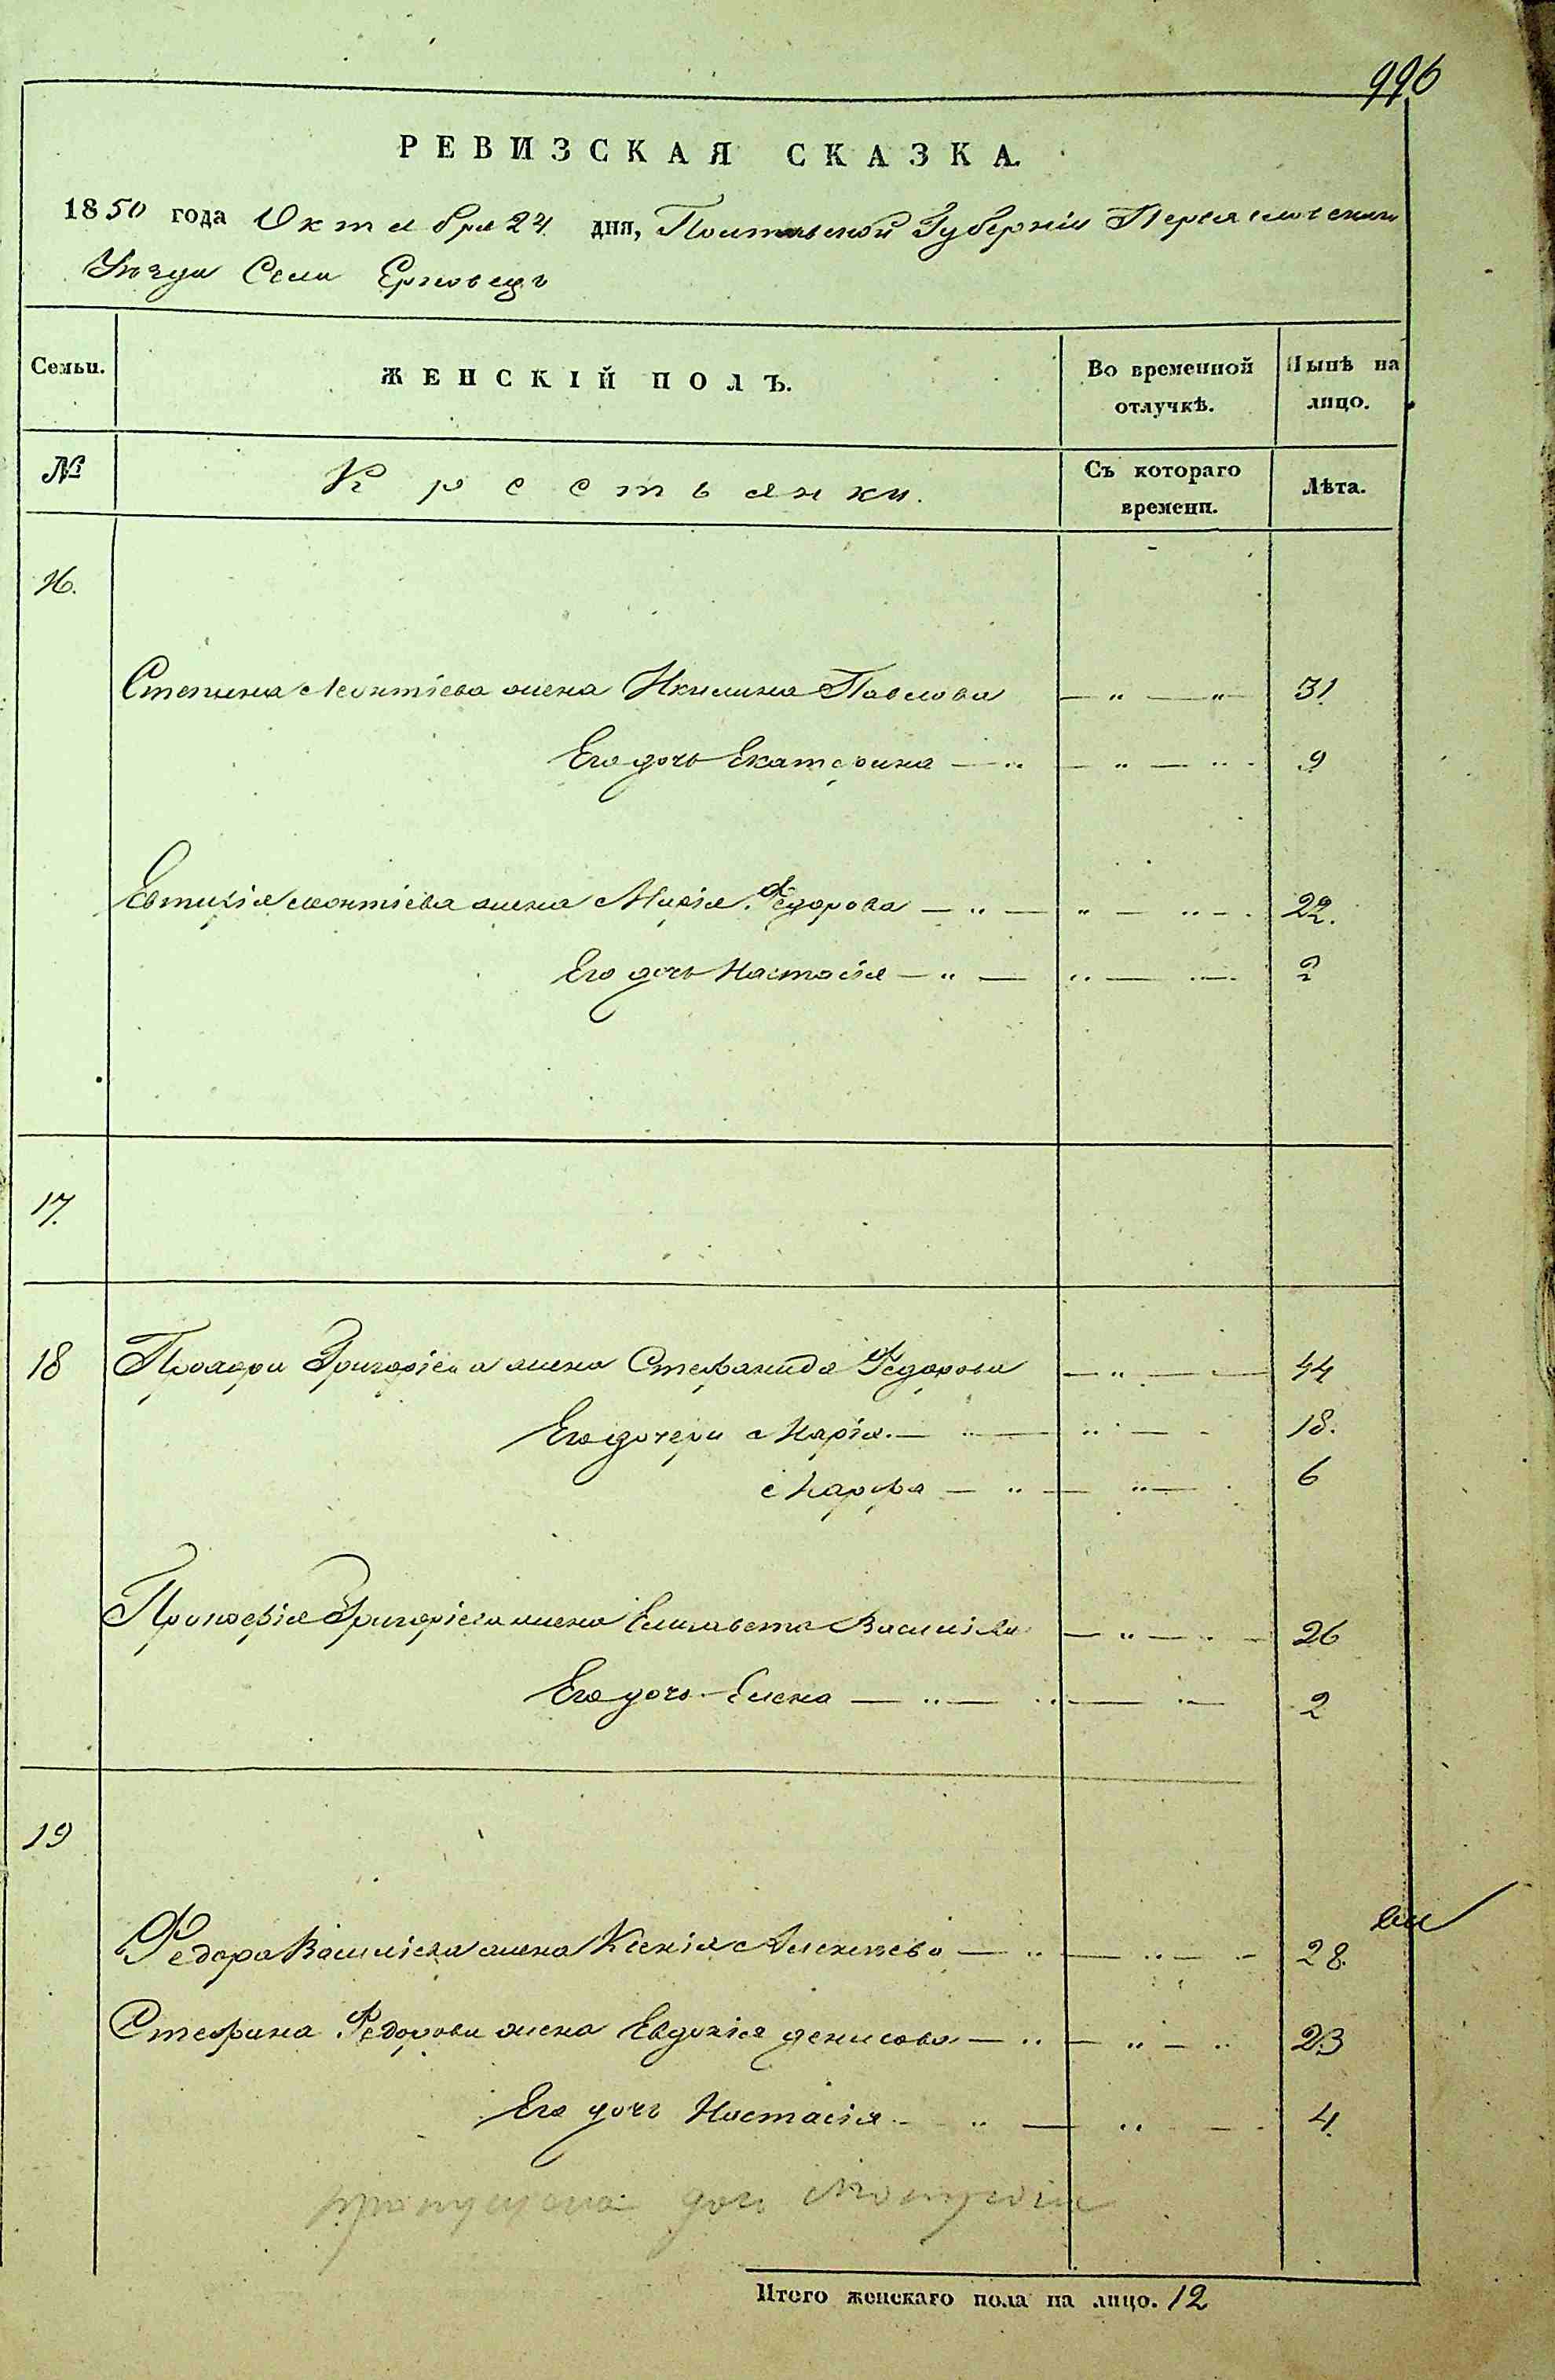 996
РЕВИЗСКАЯ СКАЗКА.
1850 года Октября 24 дня, Полтавской Губерніи Переяславскаго
Уезда Села Ерковецъ
Семьи. ЖЕНСКІЙ ПОЛЪ. Во временной отлучкѣ. Нынѣ на лицо.
№ Крестьянки. Съ котораго времени. Лѣта.
16.
Степана Леонтіева жена Акилина Павлова — " — " — 31
Его дочь Екатерина — " — " — " - 9
Евтихія Леонтіева жена Марія Федорова — " — " — " - 22.
Его дочь Настасія — " — " — — 2
17.
18 Прохора Григоріева жена Стефанида Федорова — " — — 44
Его дочери Марія — " — " — - 18.
Марфа — " — " — 6
Прокофія Григоріева жена Елисавета Василіева — " — - 26
Его дочь Елена — " — " — — 2
19
Федора Василіева жена Ксенія Алексѣева — " — " — - 28.
Стефана Федорова жена Евдокія Денисова — " — " — " 23
Его дочь Настасія — " — " — - 4.
пропущена дочь
Итого женскаго пола на лицо. 12